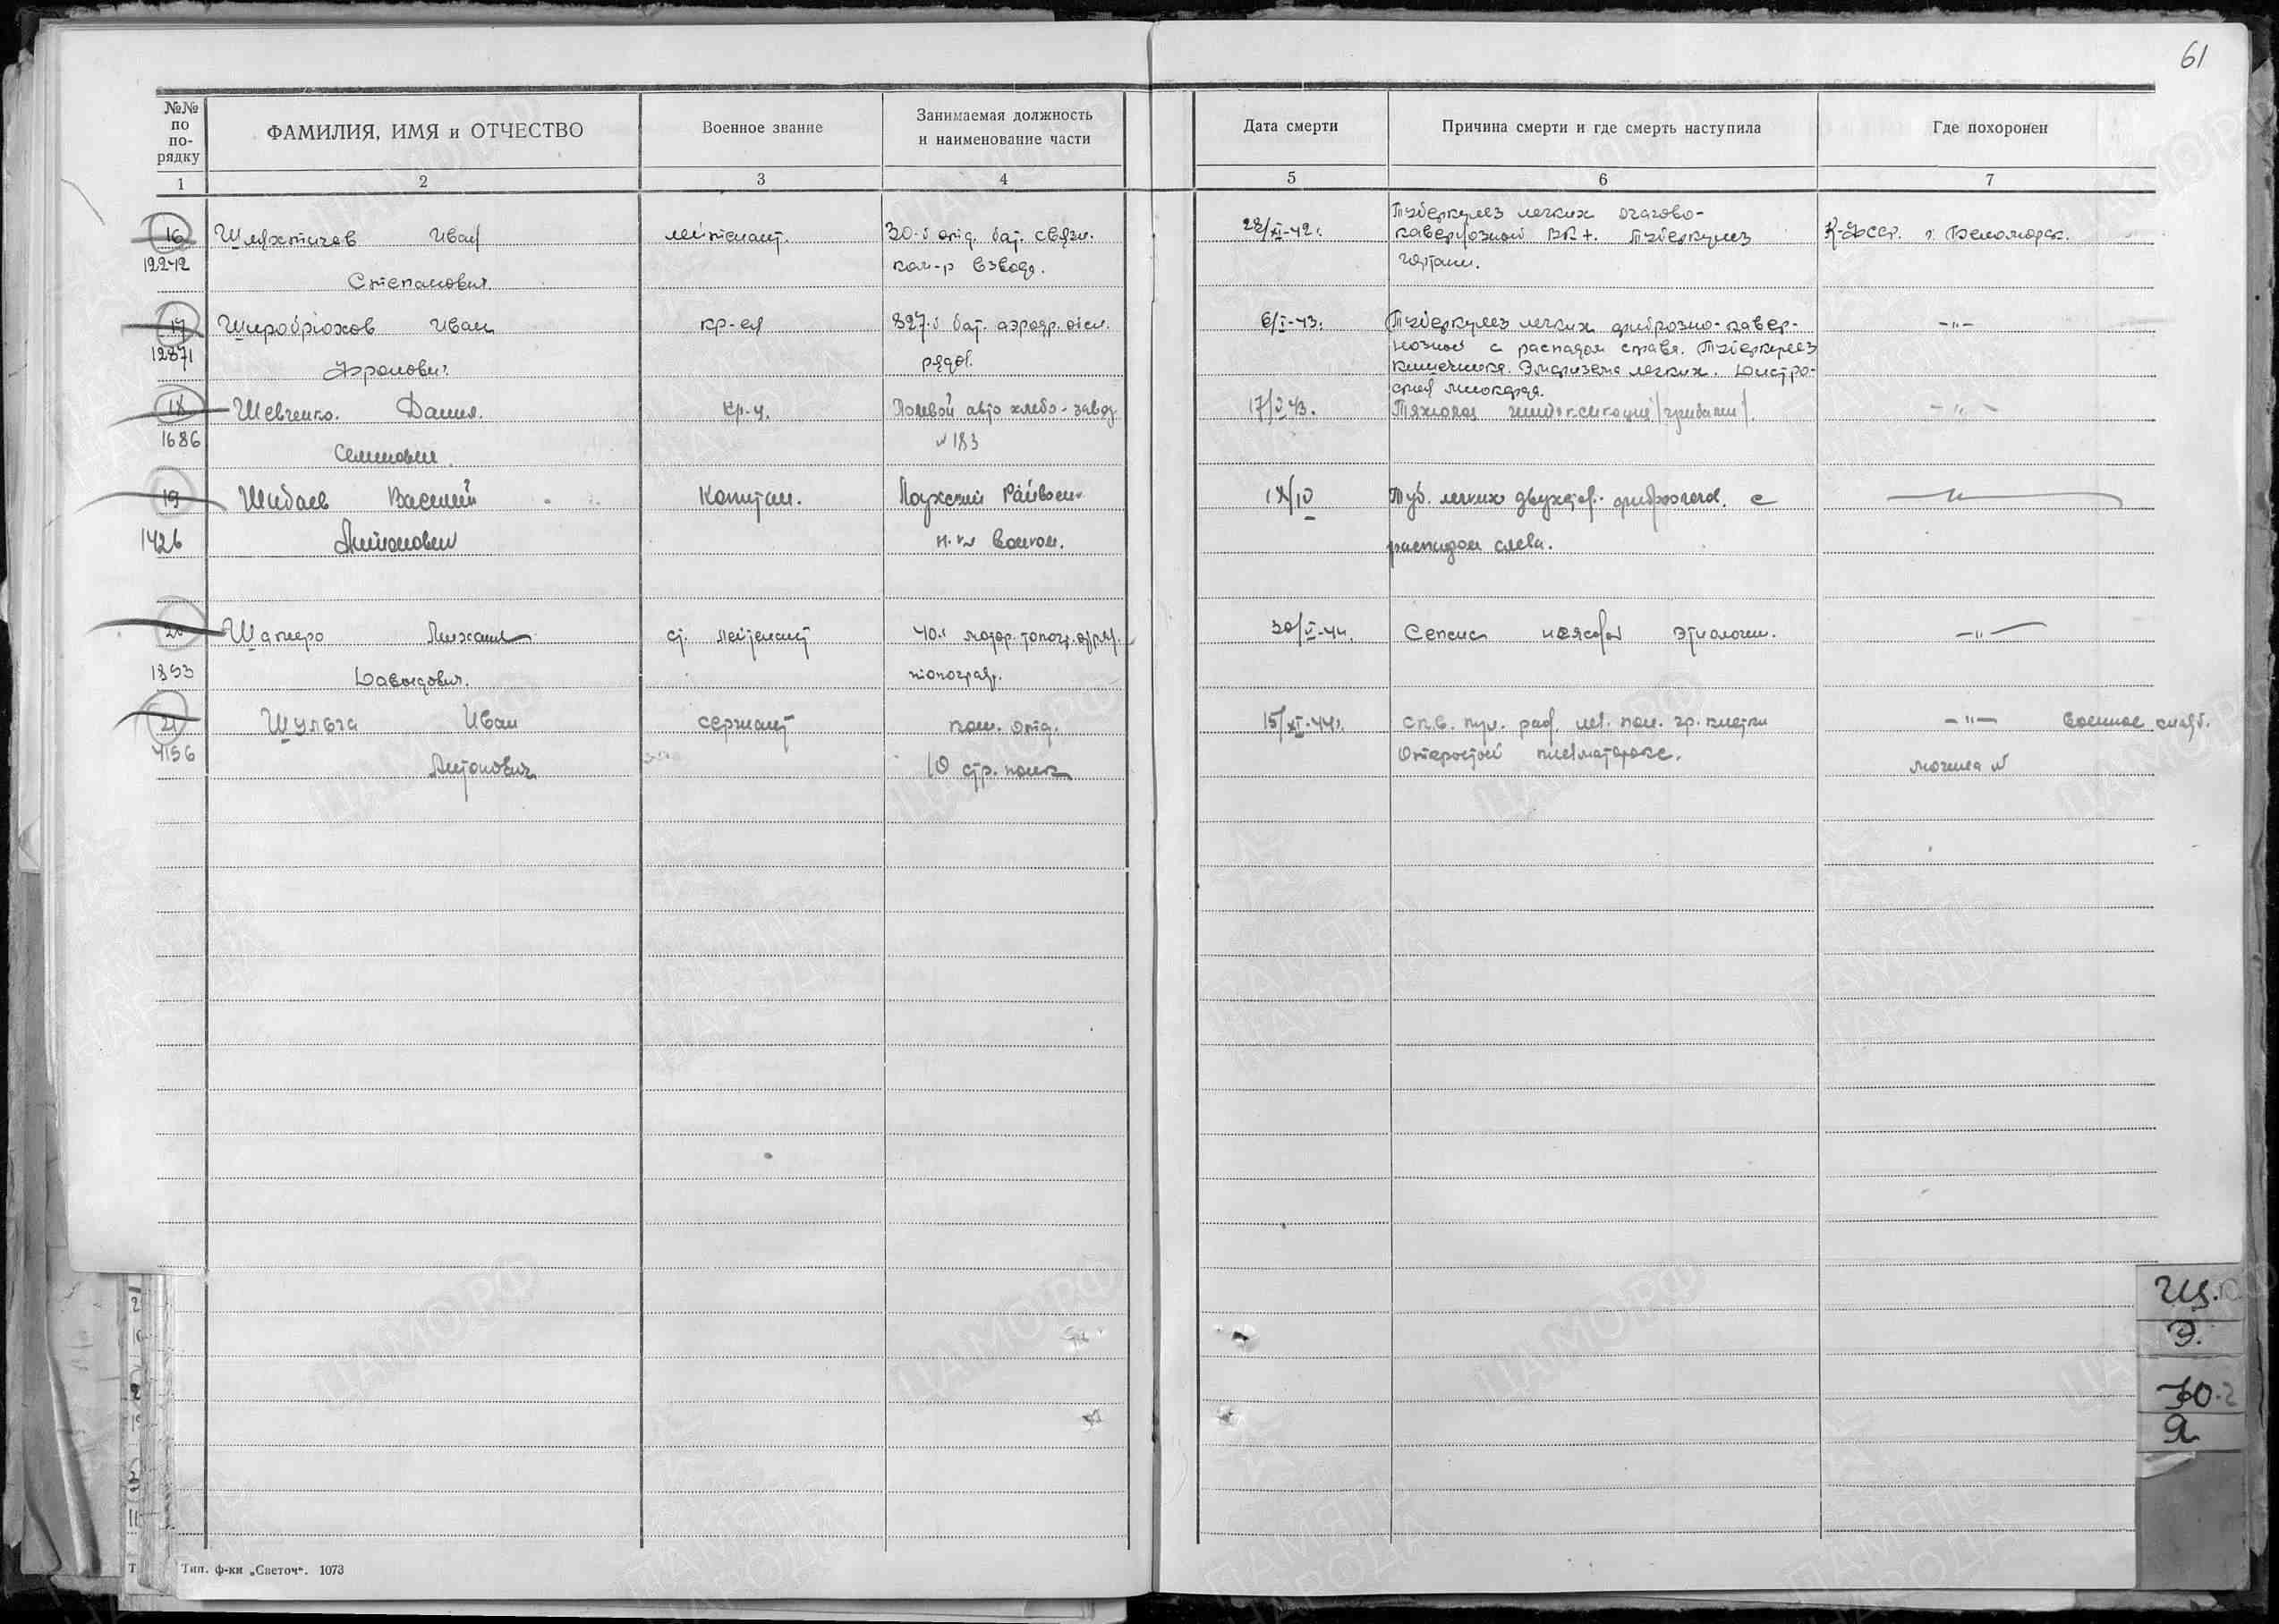 61
№№ по по- рядку
ФАМИЛИЯ, ИМЯ и ОТЧЕСТВО
Военное звание
Занимаемая должность и наименование части
Дата смерти
Причина смерти и где смерть наступила
Где похоронен
1 2 3 4 5 6 7
16 Шляхтичев Иван лейтенант. 30-й отд. бат. связи. 28/XI-42г. Туберкулез легких очагово-
12242 ком-р взвода. кавернозной ВК+. Туберкулез К-Фсср. г. Беломорск.
Степанович гортани.
17 Широбрюхов Иван кр-ец 827-й бат. аэродр. обсл. 6/I-43г. Туберкулез легких фиброзно-кавер- -"-
12871 нозной с распадом справа. Туберкулез
Фролович рядов. кишечника. Эмфизема легких. Дистро-
фия миокарда.
18 Шевченко Данил Кр-ц. Полевой авто хлебо-завод 17/V 43. Тяжелая интоксикация /грибами/. -"-
1686 Семинович №183
19 Шибаев Василий Капитан. Лоухский Райвоен- Туб. легких двухстор. с -"-
1426 Антонович распадом слева.
20 Шапиро Михаил ст. лейтенант 40й мотор. топогр. отряд. 30/V-44. Сепсис неясной этиологии. -"-
1893 Давыдович. топограф.
21 Шульга Иван сержант пом. отд. 15/XI-44г. Скв. пул. ран. лев. пол. гр. клетки -"- военное кладб.
4156 Антонович 10 стр. полк Открытый пневматоракс. могила №
Щ.
Э.
Ю.
Я
Тип. ф-ки „Светоч“. 1073